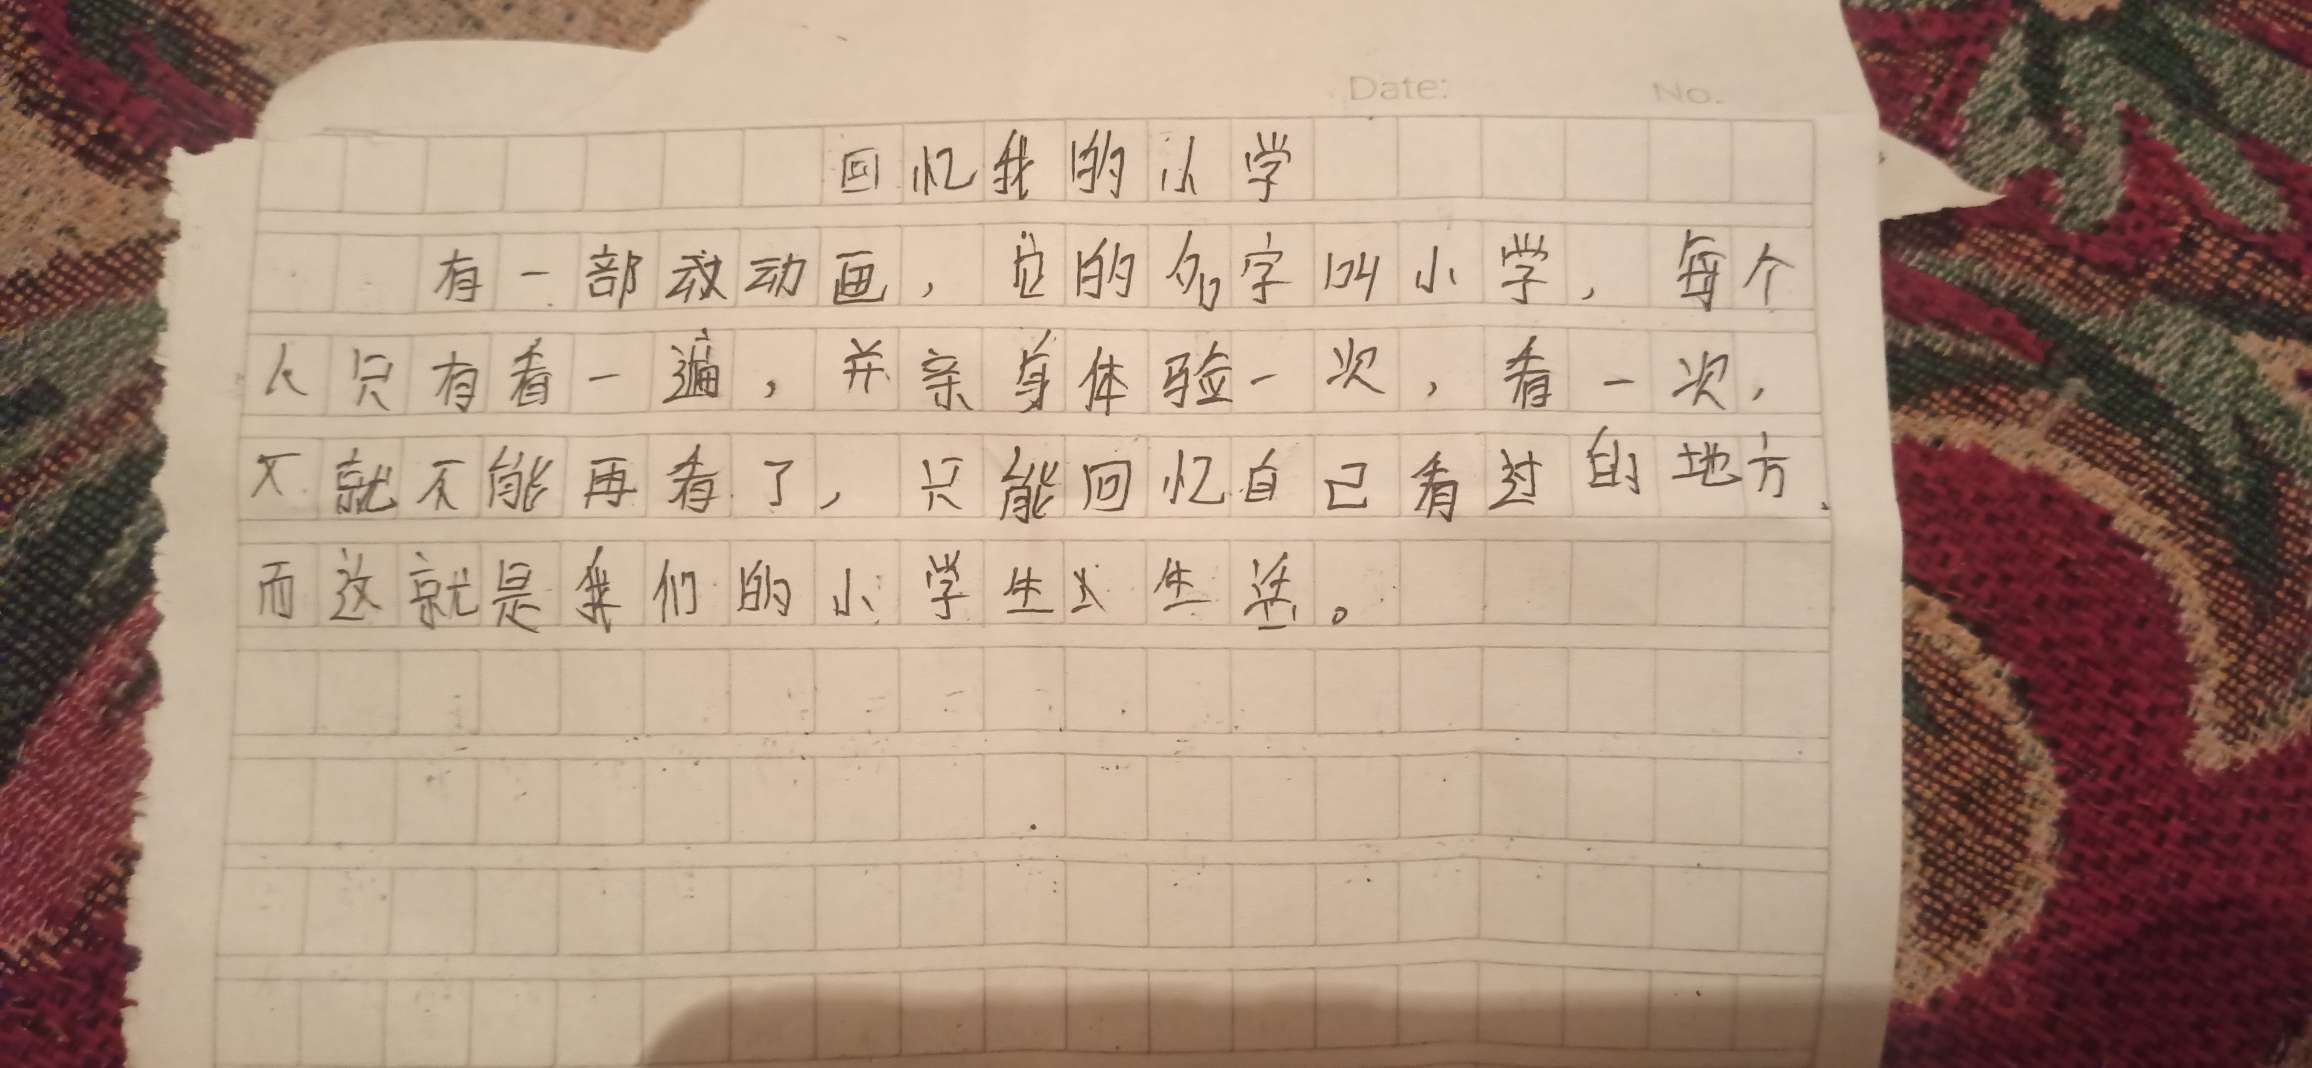 Date: No.
回忆我的小学
有一部动画,它的名字叫小学,每个
人只有看一遍,并亲身体验一次,看一次,
不就不能再看了,只能回忆自己看过的地方、
而这就是我们的小学生生活。